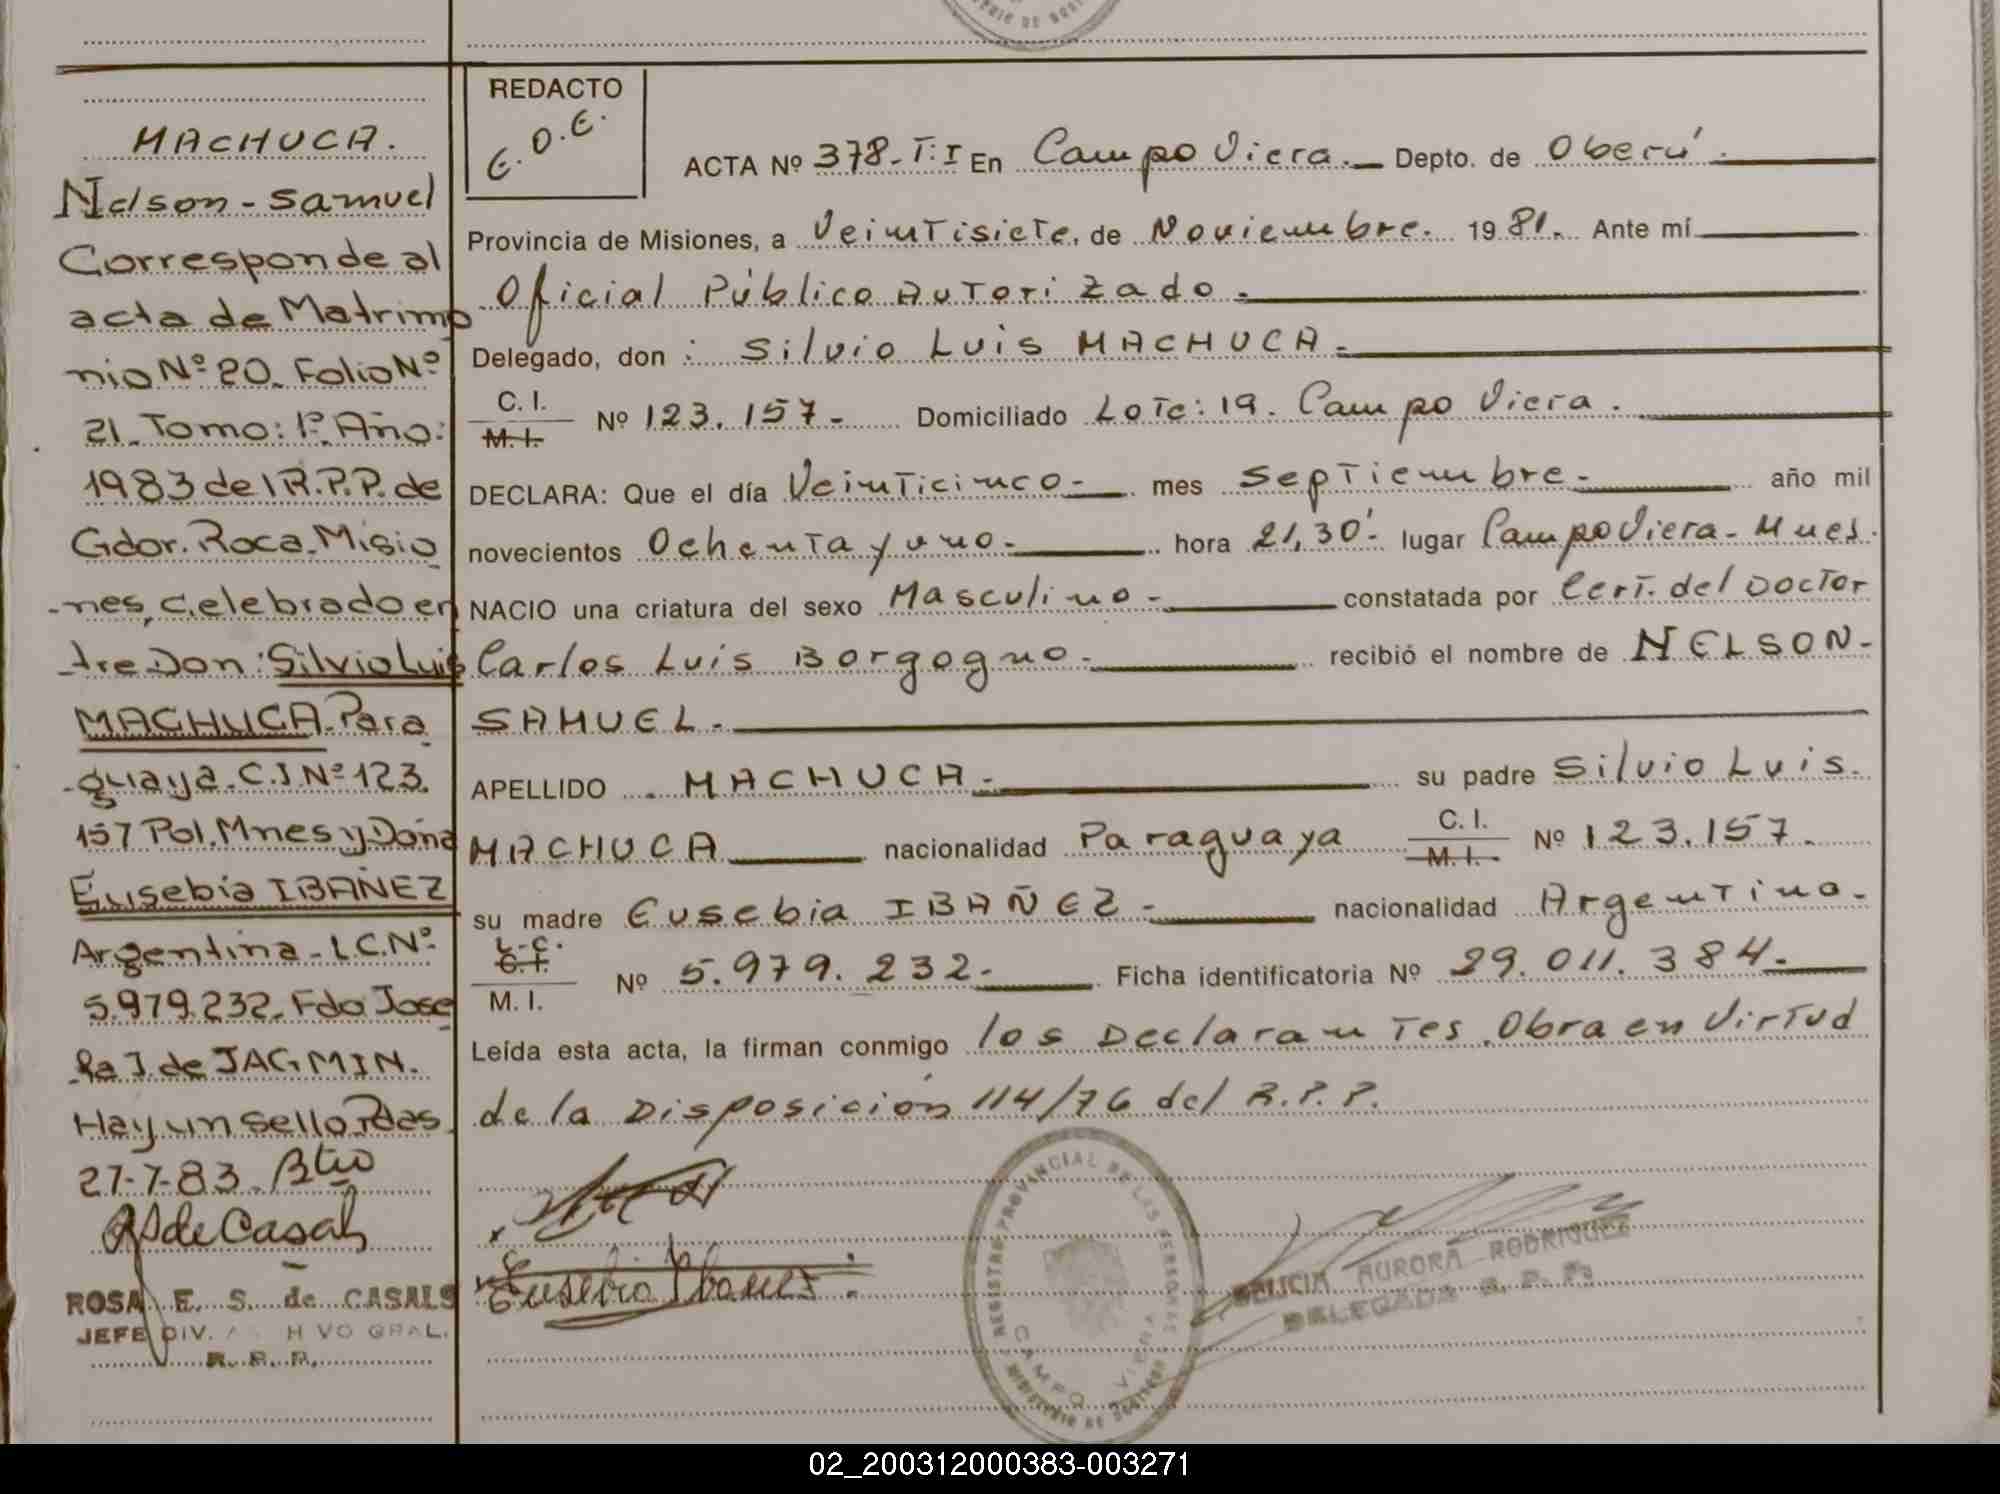 MACHUCA.
Nelson-Samuel
Corresponde al
acta de Matrimo
nio Nº 20. Folio Nº
21. Tomo: 1º. Año:
1983 del R.P.P. de
Gdor. Roca. Misio
-nes, celebrado en
-tre Don: Silvio Luis
MACHUCA. Para
-guaya. C.I Nº 123.
157 Pol. Mnes y Doña
Eusebia IBAÑEZ
Argentina - L.C.Nº
5.979.232. Fdo Jose
fa I. de JAGMIN.
Hay un sello. Pdas
27-7-83.
de Casals
ROSA E. S. de CASALS
JEFE DIV. HIVO GRAL.
R. P. P.
REDACTO
E.O.E.
ACTA Nº 378-T:I En Campo Viera. Depto. de Oberá.
Provincia de Misiones, a Veintisiete, de Noviembre. 1981. Ante mí
Oficial Público Autorizado.
Delegado, don : Silvio Luis MACHUCA.
C. I. M. I. Nº 123.157- Domiciliado Lote: 19. Campo Viera.
DECLARA: Que el día Veinticinco- mes Septiembre- año mil
novecientos Ochenta y uno- hora 21,30'- lugar Campo Viera - Mnes.
NACIO una criatura del sexo Masculino- constatada por Cert. del Doctor
Carlos Luis Borgogno- recibió el nombre de NELSON-
SAMUEL-
APELLIDO MACHUCA- su padre Silvio Luis.
MACHUCA nacionalidad Paraguaya C. I. M. I. Nº 123.157.
su madre Eusebia IBAÑEZ- nacionalidad Argentina-
L.C. C. I. M. I. Nº 5.979.232- Ficha identificatoria Nº 29.011.384-
Leída esta acta, la firman conmigo los Declarantes. Obra en Virtud
de la Disposición 114/76 del R.P.P.
Eusebia Ibañez
REGISTRO PROVINCIAL DE LAS PERSONAS
CAMPO VIERA
MINISTERIO DE GOBIERNO
DELICIA AURORA RODRIGUEZ
DELEGADA R. P. P.
02_200312000383-003271